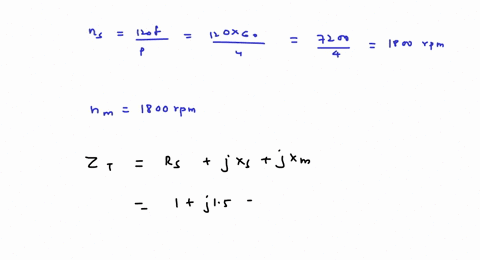 n_s = 120f/P = 120×60/4 = 7200/4 = 1800 rpm
n_m = 1800 rpm
Z_T = R_s + jx_s + jx_m
= 1 + j1.5 -